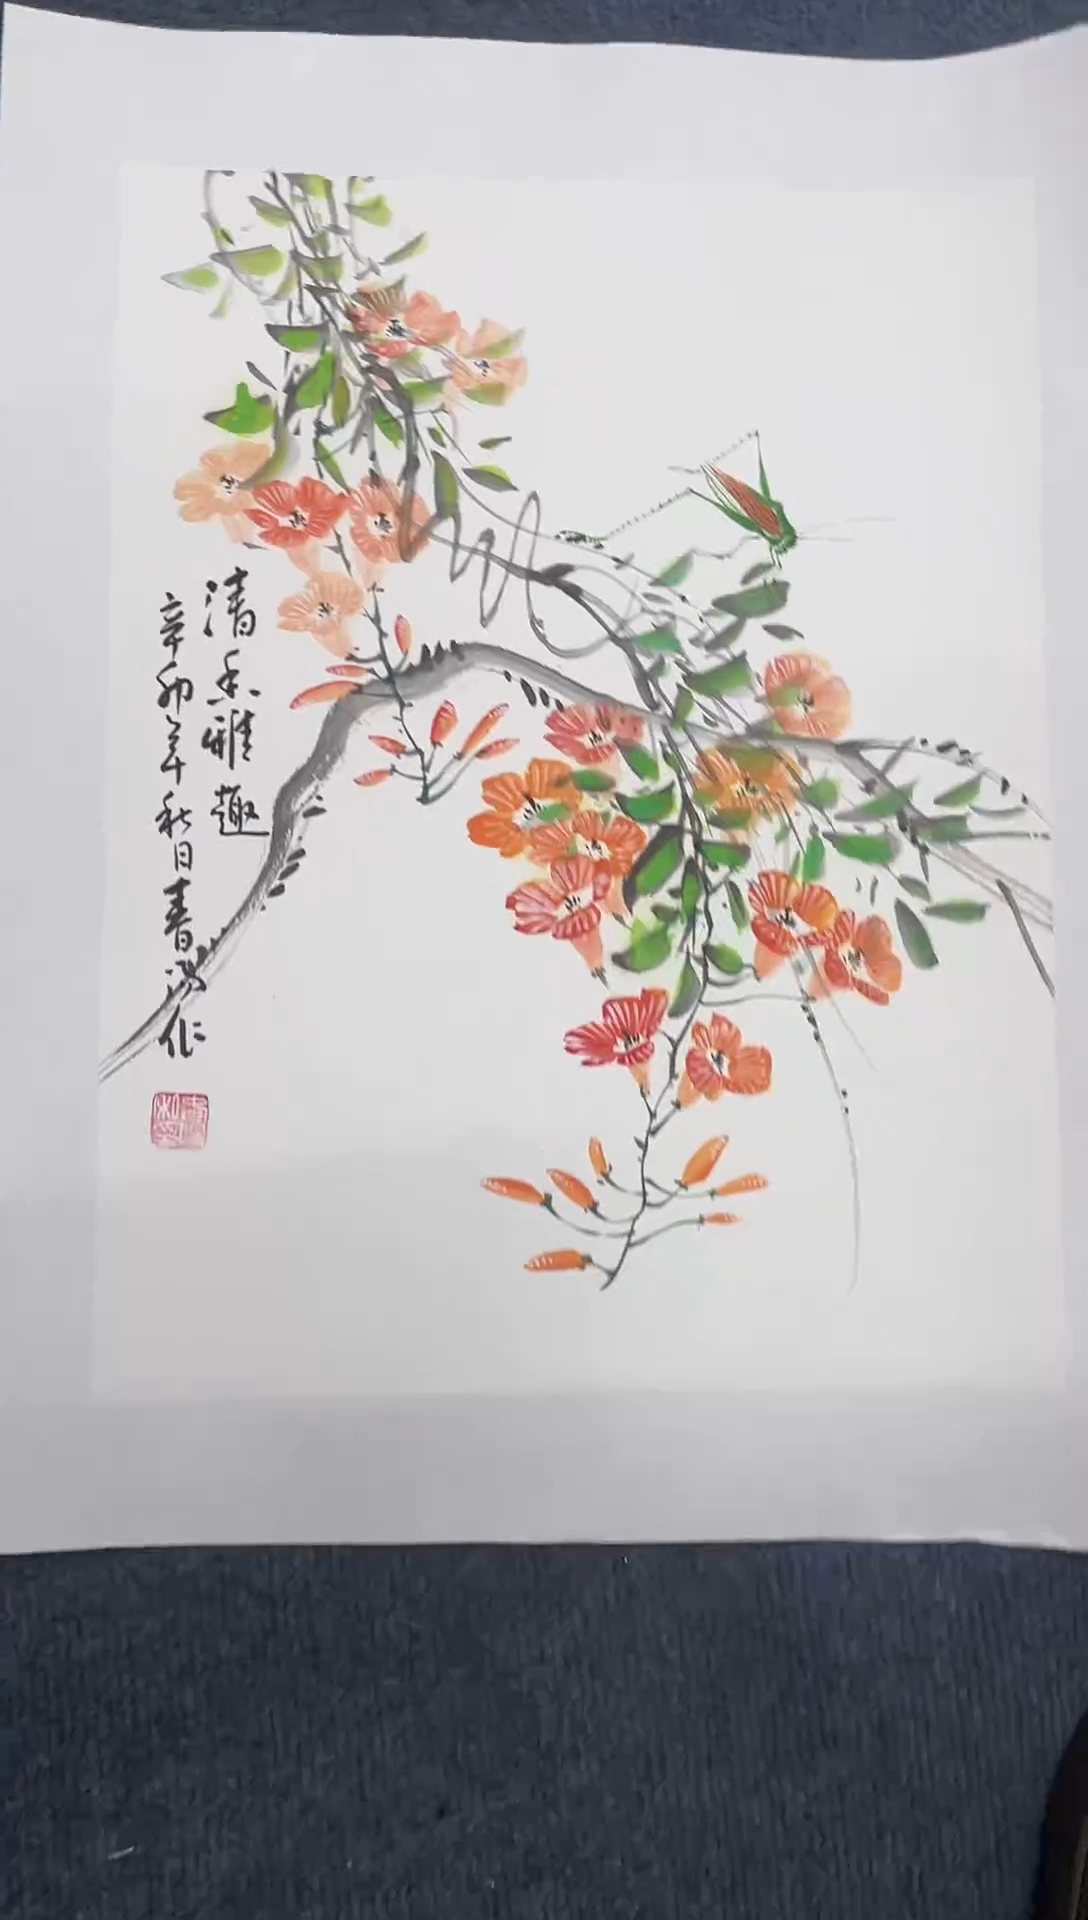 清香雅趣
辛卯年秋日春鸿作